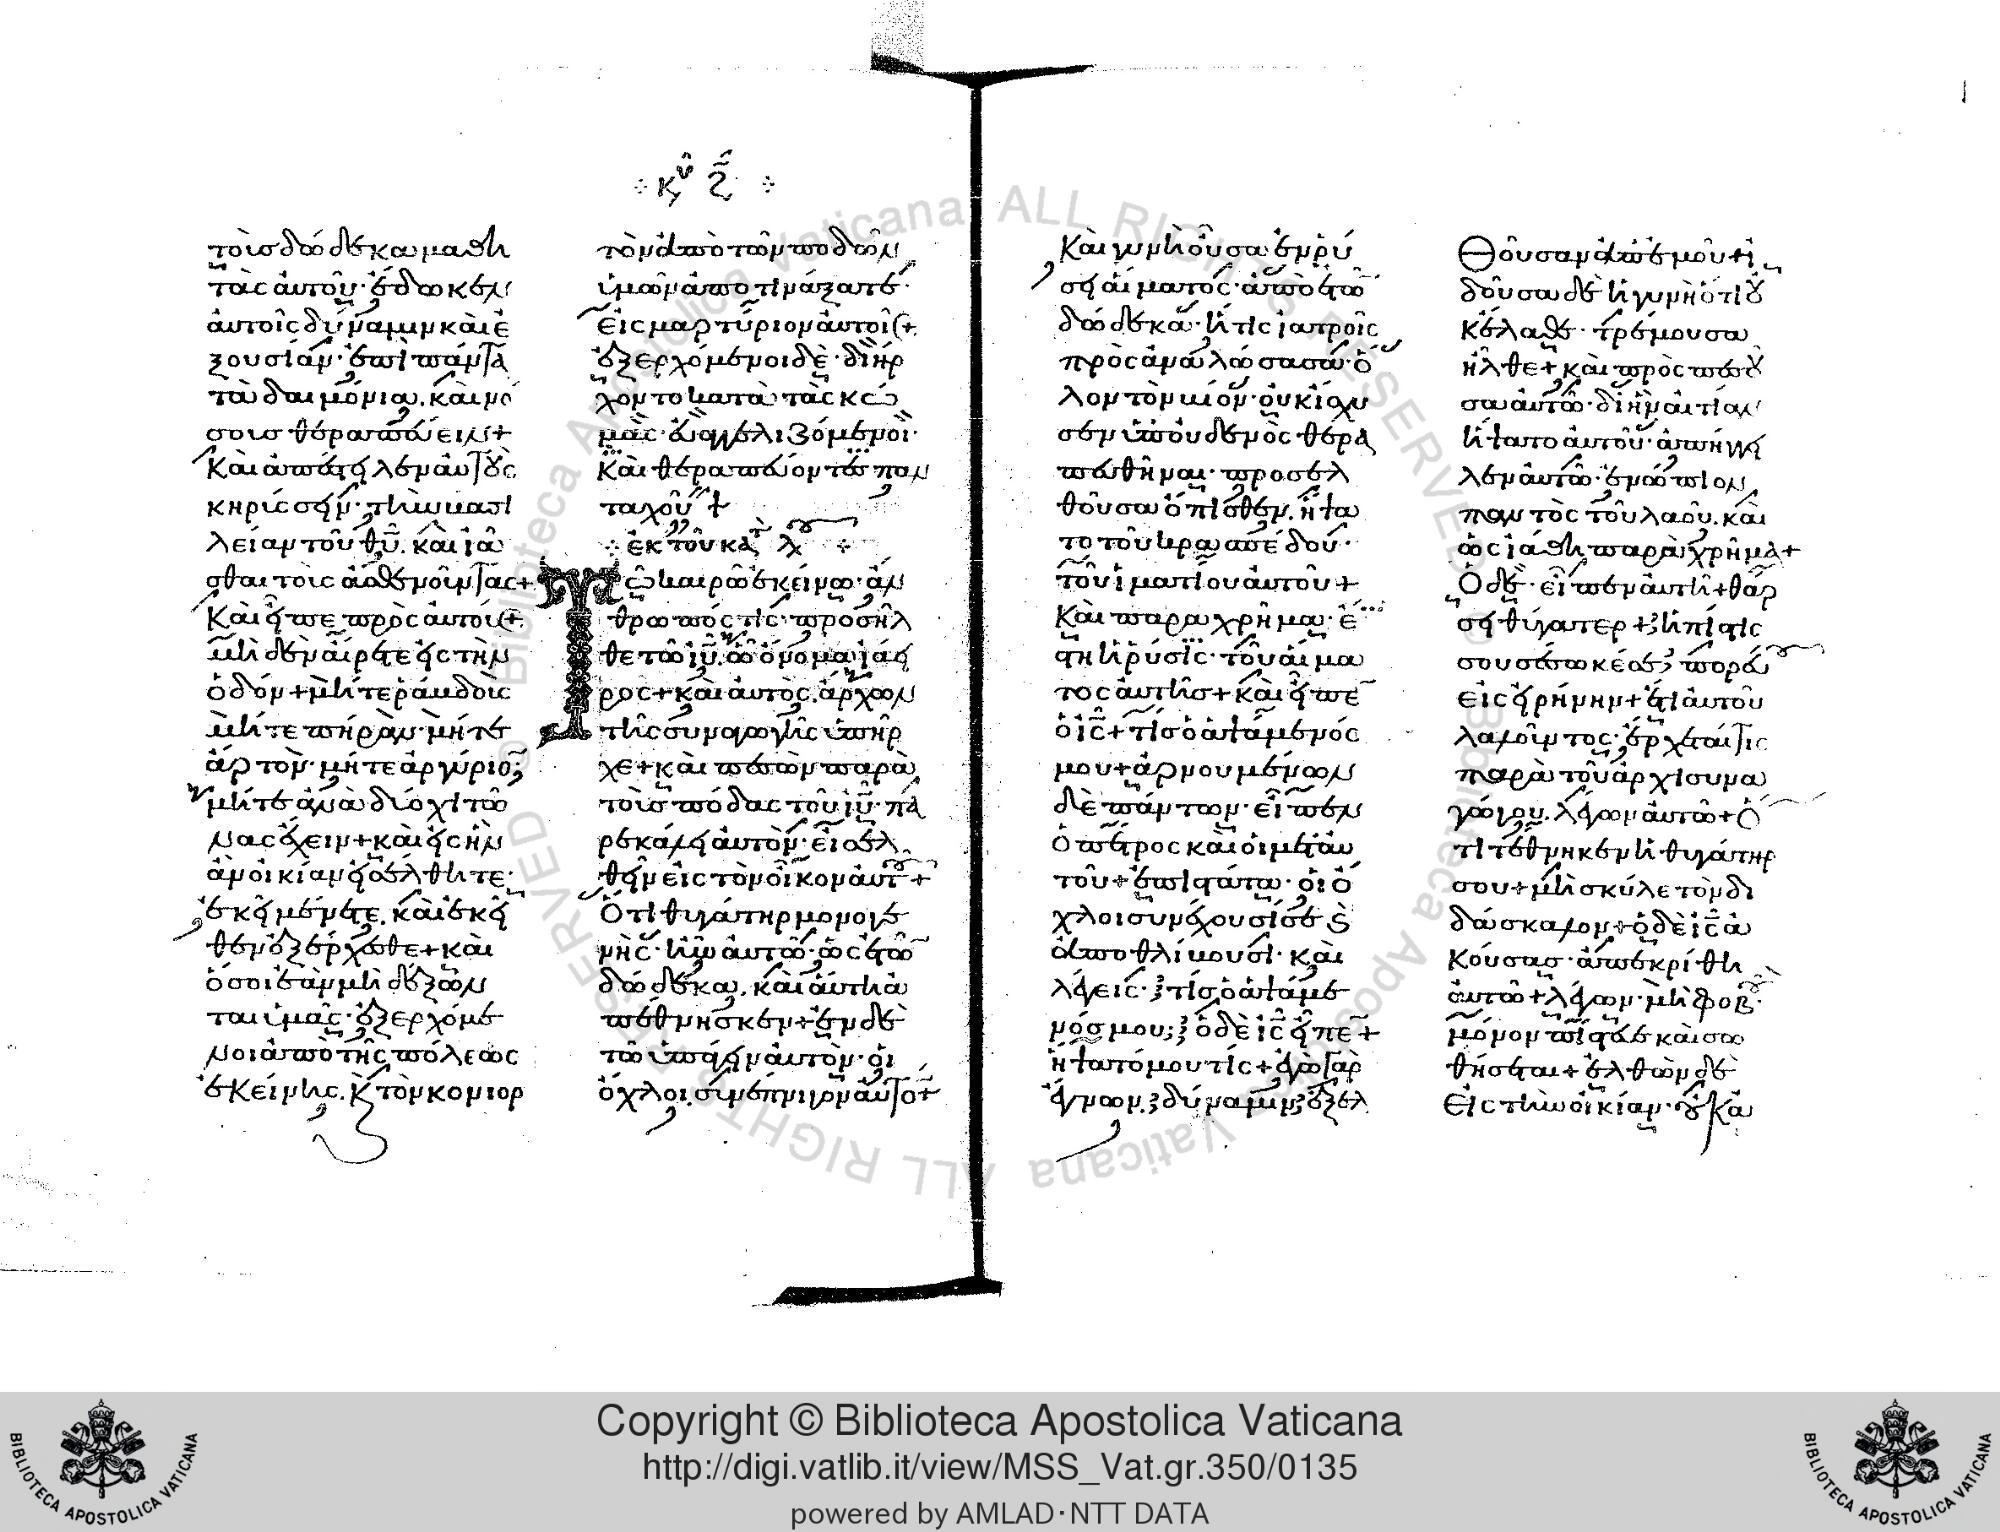 κυ ϛ
τοῖσ δώδεκα μαθη
τὰς ἀυτοῦ· ἔδωκεν
ἀυτοῖς δύναμιν καὶ ἐ
ξουσίαν· ἐπὶ πάντα
τὰ δαιμόνια, καὶ νό
σουσ θεραπεύειν+
Καὶ ἀπέστειλεν ἀυτοὺς
κηρύσσειν· τὴν βασι
λείαν τοῦ θυ̅, καὶ ἰᾶ
σθαι τοὺς ἀσθενοῦντας+
Καὶ εἶπε πρὸς ἀυτούς+
μηδὲν αἴρετε εἰς τὴν
ὁδόν+ μήτε ῥάβδους
μήτε πήραν· μήτε
ἄρτον· μήτε ἀργύριον,
μήτε ἀνὰ δύο χιτῶ
νας ἔχειν+ καὶ εἰς ἣν
ἂν οἰκίαν εἰσέλθητε·
ἐκεῖ μένετε, καὶ ἐκεῖ
θεν ἐξέρχεσθε+ καὶ
ὅσοι ἐὰν μὴ δέξων
ται ὑμᾶς· ἐξερχόμε
νοι ἀπὸ τῆς πόλεως
ἐκείνης, κ̀ τὸν κονιορ
τὸν ἀπὸ τῶν ποδῶν
ὑμῶν ἀποτινάξατε·
εἰς μαρτύριον ἀυτοῖς+
ἐξερχόμενοι δὲ· διήρ
χοντο κατὰ τὰς κώ
μὰς· ἐυαγγελιζόμενοι·
Καὶ θεραπεύοντες παν
ταχοῦ+
ἐκ τοῦ κατ λκ
Τῶ καιρῶ ἐκείνω· ἄν
θρωπός τις· προσῆλ
θε τῶ ιυ̅, ὧ ὄνομα ἰάει
ρος+ καὶ ἀυτὸς, ἄρχων
τῆς συναγωγῆς ὑπῆρ
χε+ καὶ πεσὼν παρὰ
τοὺσ πόδας τοῦ ιυ̅· πα
ρεκάλει ἀυτὸν· εἰσελ
θεῖν εἰς τὸν οἶκον ἀυτοῦ+
Ὅτι θυγάτηρ μονογε
νὴς· ἦν ἀυτῶ· ὡς ἐτῶν
δώδεκα, καὶ ἀυτὴ ἀ
πέθνησκεν+ ἐν δὲ
τῶ ὑπάγειν ἀυτὸν· οἱ
ὄχλοι, συνέπνιγον ἀυτόν+
Καὶ γυνὴ οὖσα ἐν ῥύ
σει αἵματος· ἀπὸ ἐτῶν
δώδεκα· ἥτις ἰατροῖς
προσαναλώσασα· ὅ
λον τὸν βίον· ὀυκ ἴσχυ
σεν ὑπ' ὀυδενὸς· θερα
πευθῆναι· προσελ
θοῦσα ὄπισθεν, ἥψα
το τοῦ κρασπέδου·
τοῦ ἱματίου ἀυτοῦ+
Καὶ παραχρῆμα· ἔ
στη ἡ ῥύσις· τοῦ αἵμα
τος ἀυτῆς+ καὶ εἶπεν
ὁ ις̅+ τίς ὁ ἁψάμενός
μου+ ἀρνουμένων
δὲ πάντων· εἶπεν
ὁ πέτρος καὶ οἱ μετ' ἀυ
τοῦ+ ἐπιστάτα· οἱ ὄ
χλοι συνέχουσί σε κ̀
ἀποθλίβουσι· καὶ
λέγεις· τίς ὁ ἁψάμε
νός μου; ὁ δὲ ις̅ εἶπεν+
ἥψατό μου τίς+ ἐγὼ γὰρ
ἔγνων, δύναμιν ἐξελ
Θοῦσαν ἀπ' ἐμοῦ+ ἰ
δοῦσα δὲ ἡ γυνὴ ὅτι οὐ
κ ἔλαθε· τρέμουσα
ἦλθε+ καὶ προσπεσοῦ
σα ἀυτῶ· δι' ἣν ἀιτίαν
ἥψατο ἀυτοῦ· ἀπήγγει
λεν ἀυτῶ· ἐνώπιον
παντὸς τοῦ λαοῦ, καὶ
ὡς ἰάθη παραχρῆμα+
Ὁ δὲ· εἶπεν ἀυτῆ+ θάρ
σει θύγατερ+ ἡ πίστις
σου σέσωκέ σε, πορεύου
εἰς εἰρήνην+ ἔτι ἀυτοῦ
λαλοῦντος· ἔρχεταί τις
παρὰ τοῦ ἀρχισυνα
γώγου, λέγων ἀυτῶ+ ὅ
τι τέθνηκεν ἡ θυγάτηρ
σου+ μὴ σκύλε τὸν δι
δάσκαλον+ ὁ δὲ ις̅ ἀ
κούσας· ἀπεκρίθη
ἀυτῶ+ λέγων· μὴ φοβοῦ·
μόνον πίστευε καὶ σω
θήσεται+ ἐλθὼν δὲ
εἰς τὴν οἰκίαν· οὐκ ἀ
Copyright © Biblioteca Apostolica Vaticana
http://digi.vatlib.it/view/MSS_Vat.gr.350/0135
powered by AMLAD·NTT DATA
BIBLIOTECA APOSTOLICA VATICANA
BIBLIOTECA APOSTOLICA VATICANA
© Biblioteca Apostolica Vaticana ALL RIGHTS RESERVED © Biblioteca Apostolica Vaticana ALL RIGHTS RESERVED